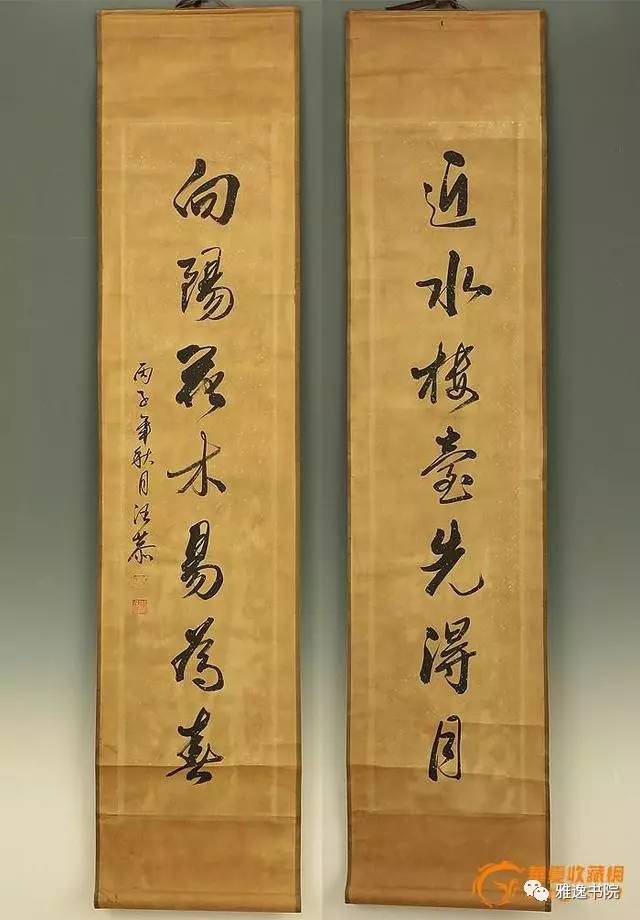 近水楼臺先得月
向陽花木易為春
丙子年秋月汪恭
華夏收藏網
雅逸书院